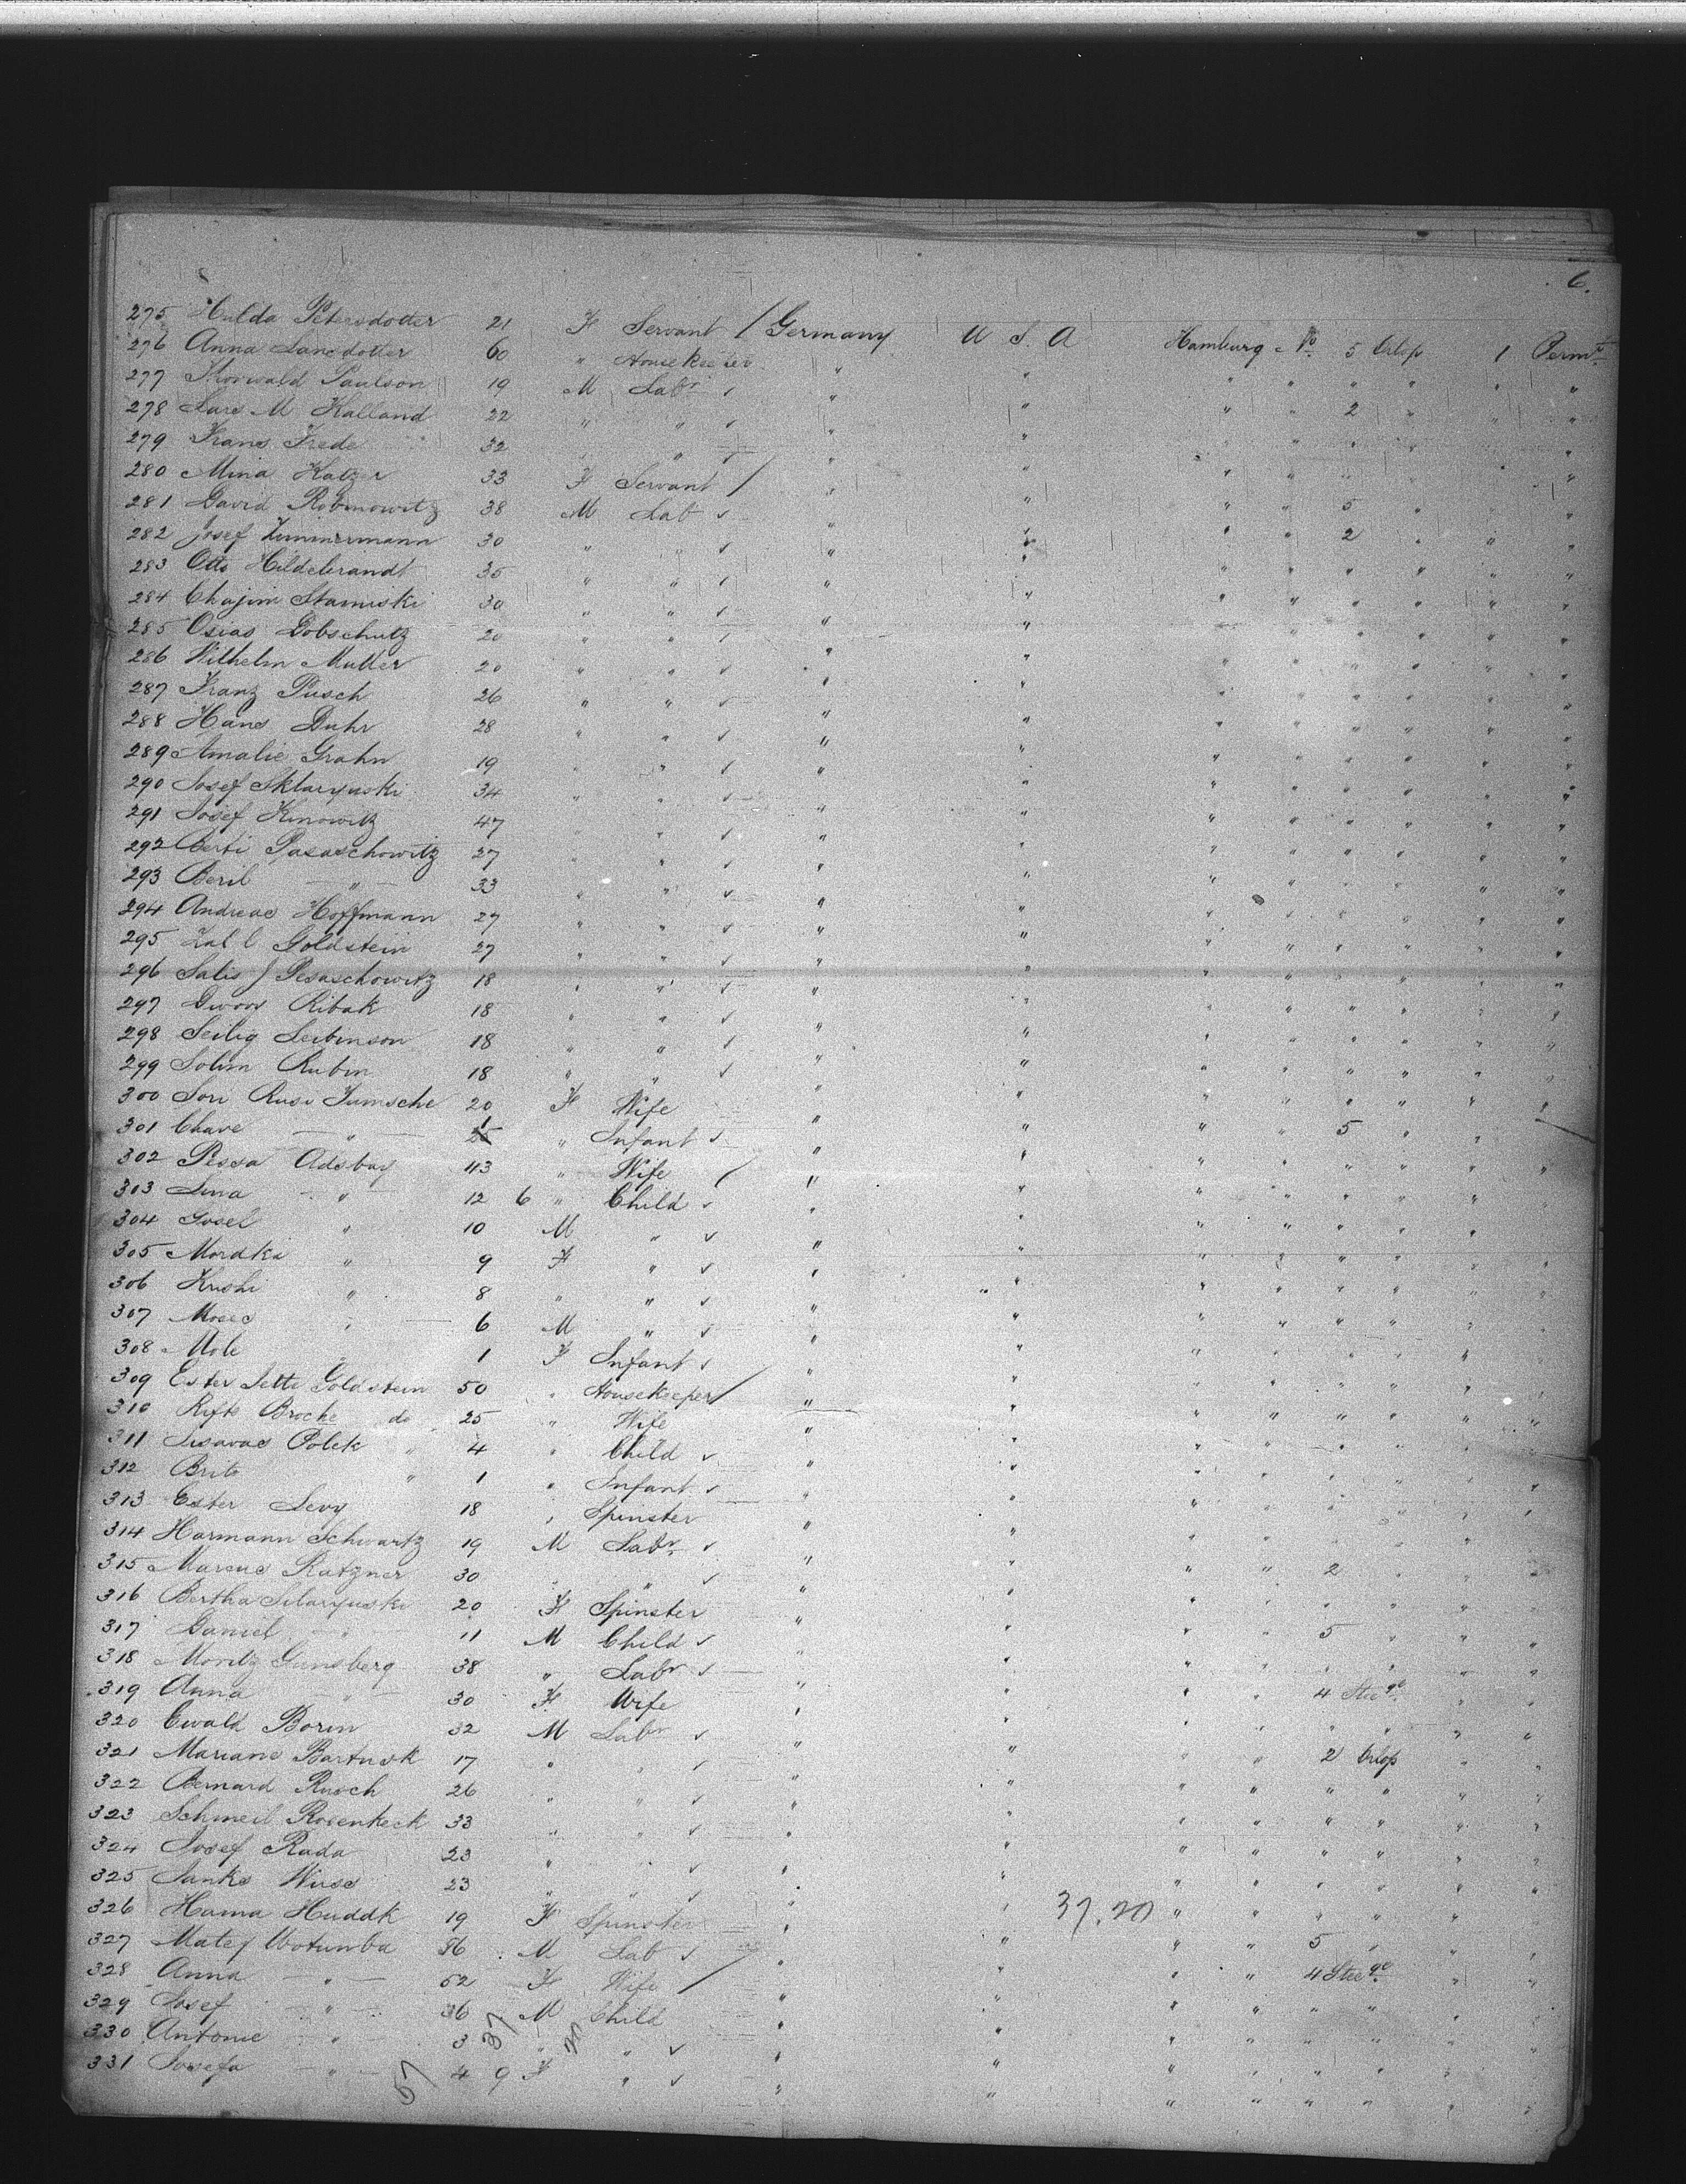 6.
275 Hulda Petersdotter 21 F Servant / Germany U S A Hamburg No 5 Orlop 1 Permt
276 Anna Larsdotter 60 " Housekeeper " " " " " " " "
277 Thorwald Paulson 19 M Labr ✓ " " " " 2 " " "
278 Lars M Halland 22 " " ✓ " " " " " " " "
279 Frans Frede 32 " " ✓ " " " " " " " "
280 Mina Katzer 33 F Servant / " " " " 5 " " "
281 David Robinowitz 38 M Lab ✓ " " " " 2 " " "
282 Josef Zimmermann 30 " " ✓ " " " " " " " "
283 Otto Hildebrandt 35 " " ✓ " " " " " " " "
284 Chajim Stamiski 30 " " ✓ " " " " " " " "
285 Osias Dobschutz 20 " " ✓ " " " " " " " "
286 Wilhelm Muller 20 " " ✓ " " " " " " " "
287 Franz Pusch 26 " " ✓ " " " " " " " "
288 Hans Duhr 28 " " ✓ " " " " " " " "
289 Amalie Grahn 19 " " ✓ " " " " " " " "
290 Josef Sklaryuski 34 " " ✓ " " " " " " " "
291 Josef Kinowitz 47 " " ✓ " " " " " " " "
292 Berti Pasaschowitz 27 " " ✓ " " " " " " " "
293 Beril — " — 33 " " ✓ " " " " " " " "
294 Andreas Hoffmann 27 " " ✓ " " " " " " " "
295 Goldstein 27 " " ✓ " " " " " " " "
296 Salis J Pesaschowitz 18 " " ✓ " " " " " " " "
297 Dwoor Ribak 18 " " ✓ " " " " " " " "
298 Seilig Leibinson 18 " " ✓ " " " " " " " "
299 Solim Rubin 18 " " ✓ " " " " " " " "
300 Sore Rusi Jumsche 20 F Wife " " " " 5 " " "
301 Chave — " — 1 " Infant ✓ " " " " " " " "
302 Pessa Adsbay 43 " Wife / " " " " " " " "
303 Lina — " — 12 6 " Child ✓ " " " " " " " "
304 Josel " 10 M " ✓ " " " " " " " "
305 Mordka " 9 F " ✓ " " " " " " " "
306 Krushi " 8 " " ✓ " " " " " " " "
307 Moses " 6 M " ✓ " " " " " " " "
308 Mole " 1 F Infant ✓ " " " " " " " "
309 Ester Jette Goldstein 50 " Housekeeper / " " " " " " " "
310 Rifke Broche do 25 " Wife " " " " " " " "
311 Polek " 4 " Child ✓ " " " " " " " "
312 Brite " 1 " Infant ✓ " " " " " " " "
313 Ester Levy 18 " Spinster " " " " " " " "
314 Harmann Schwartz 19 M Labr ✓ " " " " 2 " " "
315 Marcus Ratzner 30 " " ✓ " " " " " " " "
316 Bertha Silaryuski 20 F Spinster " " " " 5 " " "
317 Daniel — " — 11 M Child ✓ " " " " " " " "
318 Moritz Gunsberg 38 " Labr ✓ " " " " 4 Steege " "
319 Anna — " — 30 F Wife " " " " " " " "
320 Ewald Boren 32 M Labr ✓ " " " " 2 Orlop " "
321 Mariane Bartusk 17 " " ✓ " " " " " " " "
322 Bernard Rusch 26 " " ✓ " " " " " " " "
323 Schmeil Rosenkeck 33 " " ✓ " " " " " " " "
324 Josef Rada 23 " " ✓ " " " " " " " "
325 Janks Wuss 23 " " ✓ " " " " " " " "
37.20
326 Hanna Huddk 19 F Spinster " " " " 5 " " "
327 Matej Wotumba 56 M Lab ✓ " " " " 4 Steege " "
328 Anna — " — 52 F Wife / " " " " " " " "
329 Josef — " — 6 M Child " " " " " " " "
330 Antonie — " — 3 " " ✓ " " " " " " " "
331 Josefa — " — 4 9 F " ✓ " " " " " " " "
57 37 20